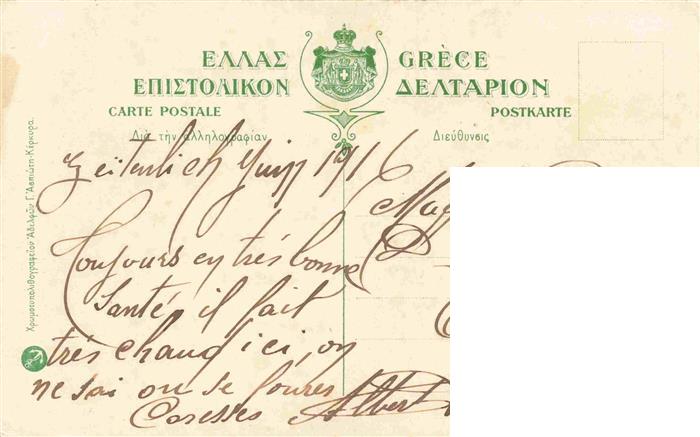 ΕΛΛΑΣ GRÈCE
ΕΠΙΣΤΟΛΙΚΟΝ ΔΕΛΤΑΡΙΟΝ
CARTE POSTALE POSTKARTE
Διὰ τὴν ἀλληλογραφίαν Διεύθυνσις
Χρωμοτυπολιθογραφεῖον Ἀδελφῶν Γ. Ἀσπιώτη-Κέρκυρα.
Zeitenlich Juin 1916
Toujours en très bonne
Santé, il fait
très chaud ici, on
ne sai ou se
Caresses Albert